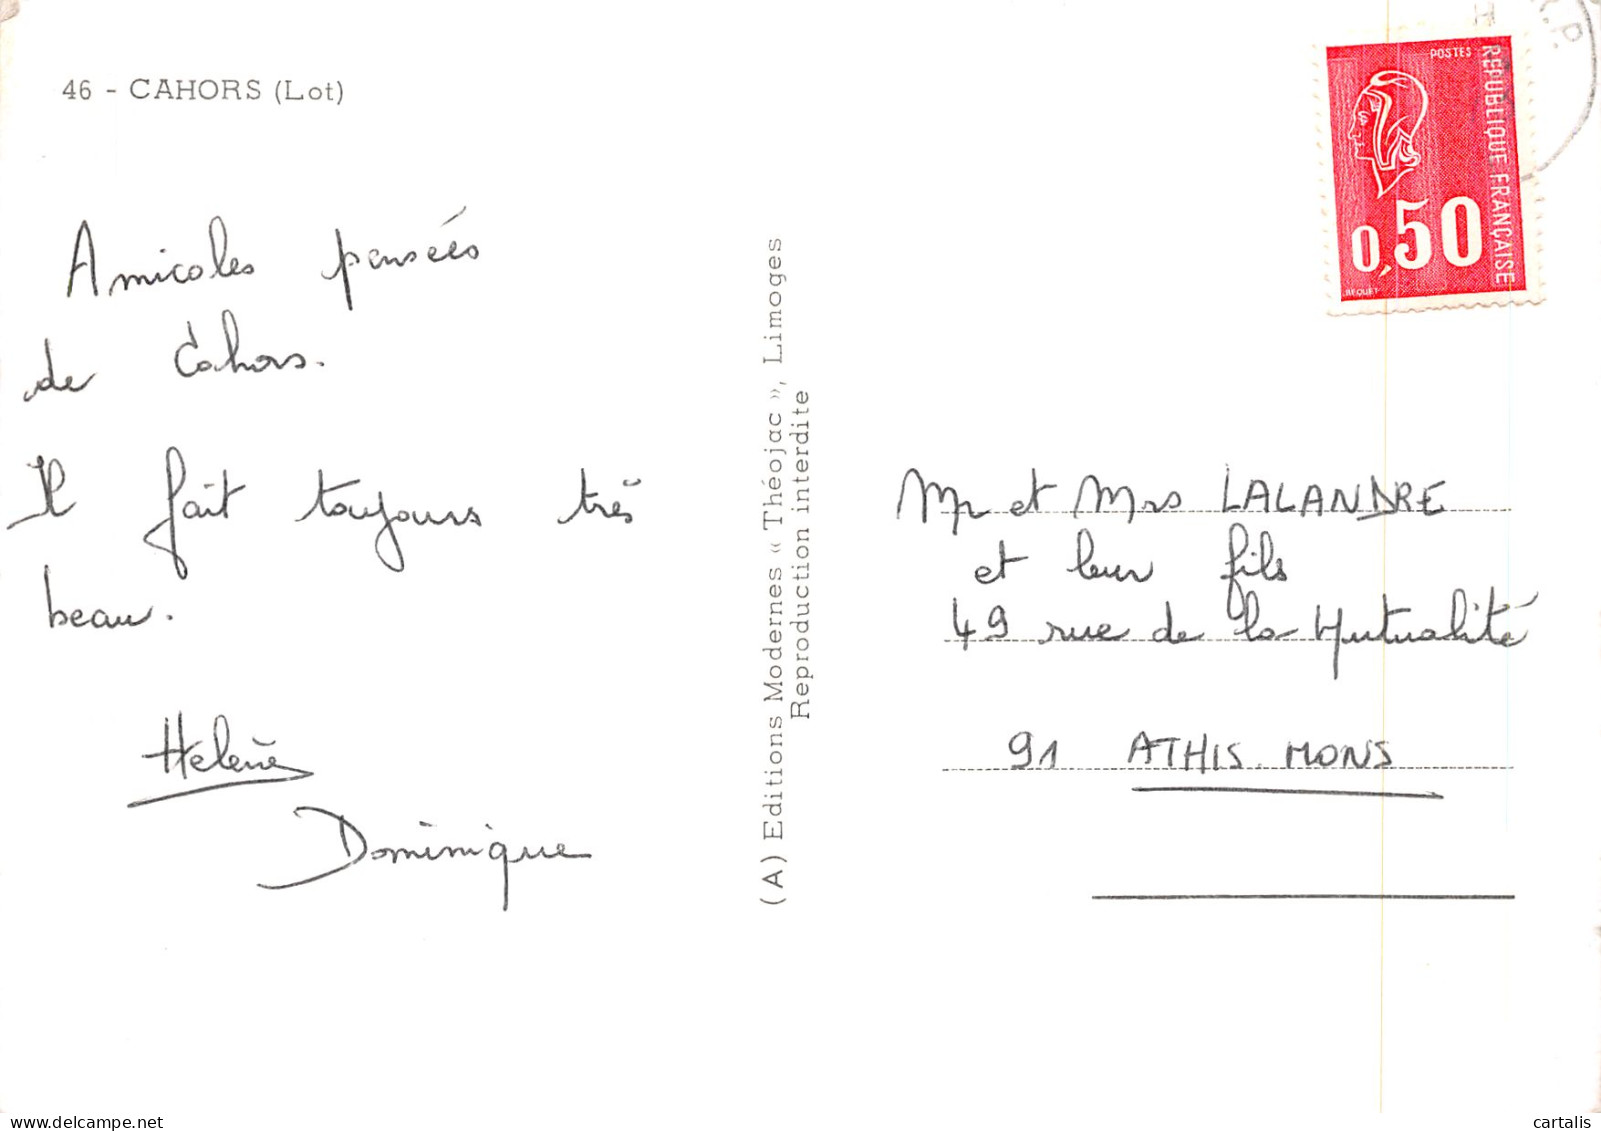 46 - CAHORS (Lot)
Amicales pensées
de Cahors.
Il fait toujours très
beau.
Hélène
Dominique
(A) Editions Modernes « Théojac », Limoges
Reproduction interdite
R.P.
POSTES
REPUBLIQUE FRANÇAISE
0,50
BEQUET
Mr et Mrs LALANDRE
et leur fils
49 rue de la Mutualité
91 ATHIS.MONS
delcampe.net
cartalis